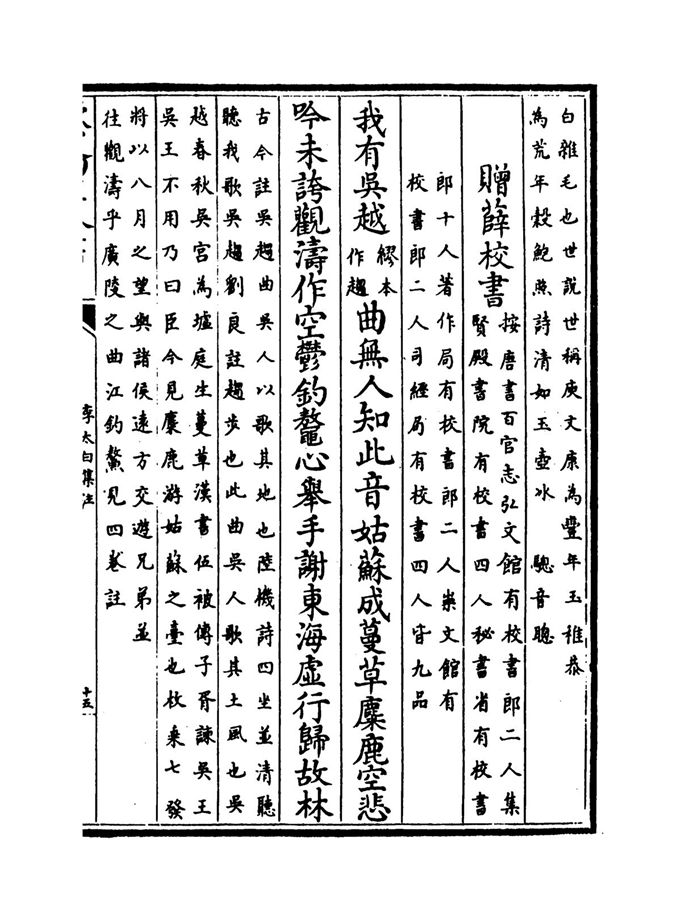 白雜毛也世說世稱庾文康為豐年玉稚恭
為荒年穀鮑照詩清如玉壺冰　驄音聰
贈薛校書
按唐書百官志弘文館有校書郎二人集
賢殿書院有校書四人秘書省有校書
郎十人著作局有校書郎二人崇文館有
校書郎二人司經局有校書四人皆九品
我有吳越
繆本
作趨
曲無人知此音姑蘇成蔓草麋鹿空悲
吟未誇觀濤作空鬱釣鼇心舉手謝東海虛行歸故林
古今註吳趨曲吳人以歌其地也陸機詩四坐並清聽
聽我歌吳趨劉良註趨步也此曲吳人歌其土風也吳
越春秋吳宮為墟庭生蔓草漢書伍被傳子胥諫吳王
吳王不用乃曰臣今見麋鹿游姑蘇之臺也枚乘七發
將以八月之望與諸侯遠方交遊兄弟並
往觀濤乎廣陵之曲江釣鰲見四卷註
李太白集注
十五